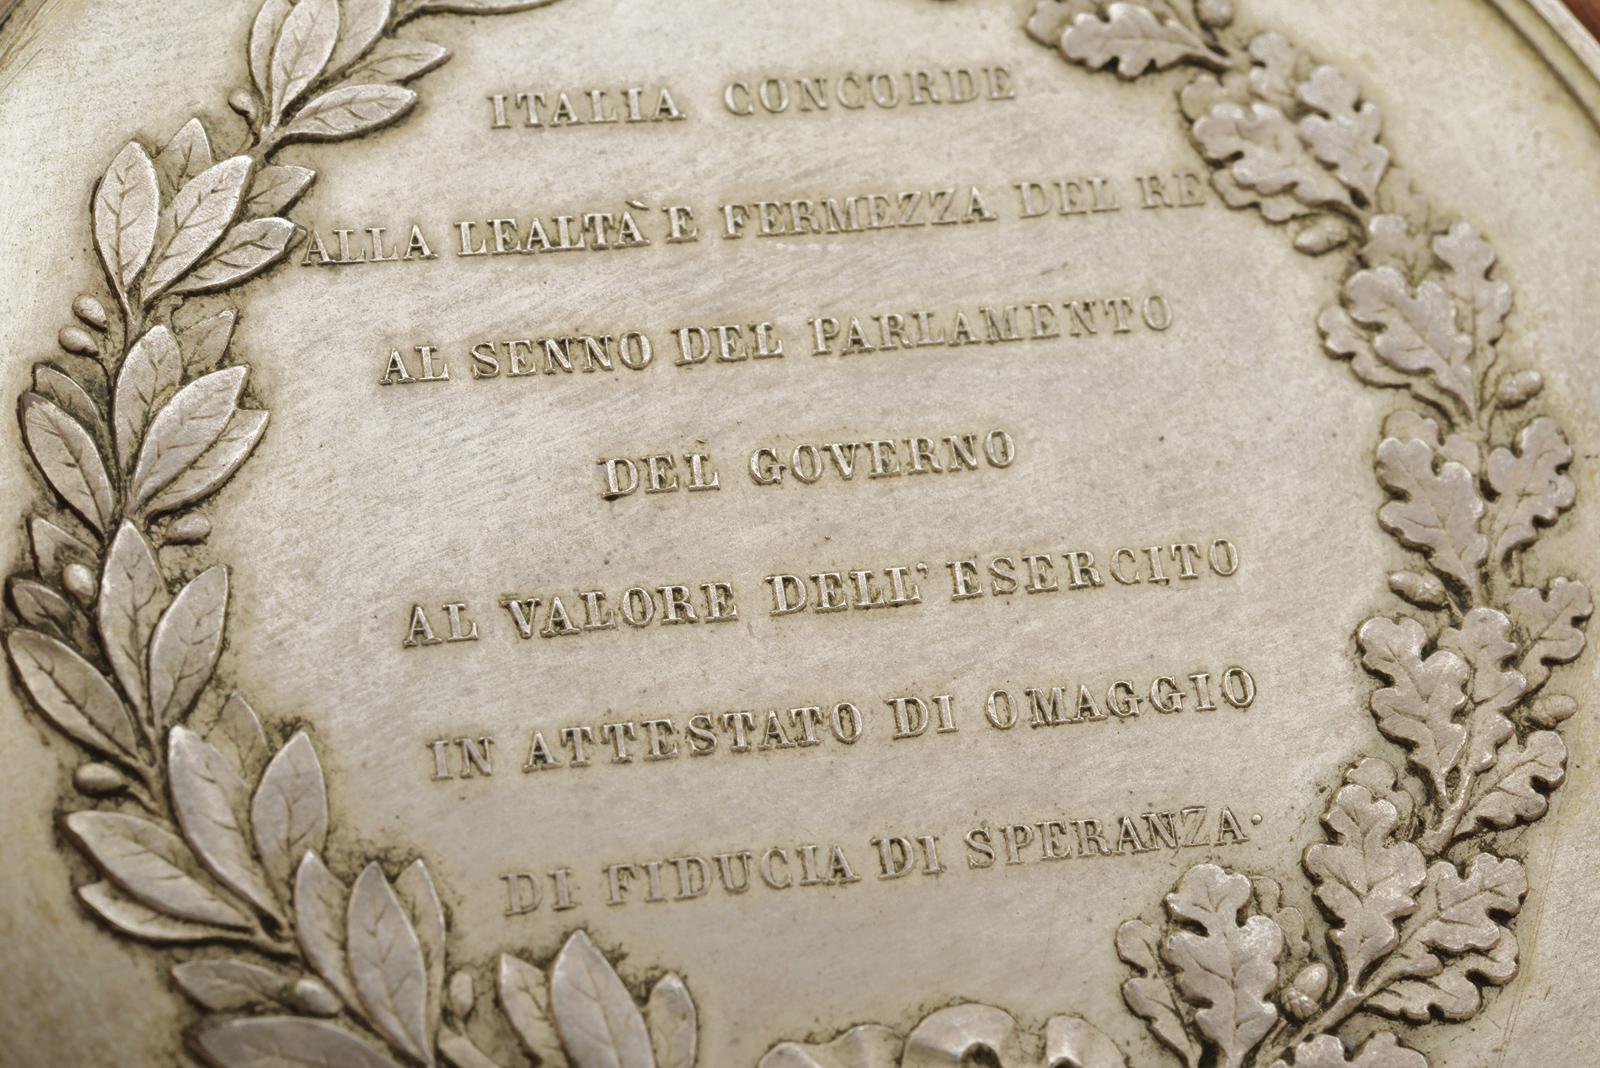 ITALIA CONCORDE
ALLA LEALTÀ E FERMEZZA DEL RE
AL SENNO DEL PARLAMENTO
DEL GOVERNO
AL VALORE DELL' ESERCITO
IN ATTESTATO DI OMAGGIO
DI FIDUCIA DI SPERANZA·